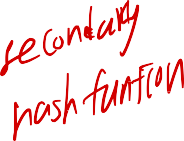 secondary
hash funtion